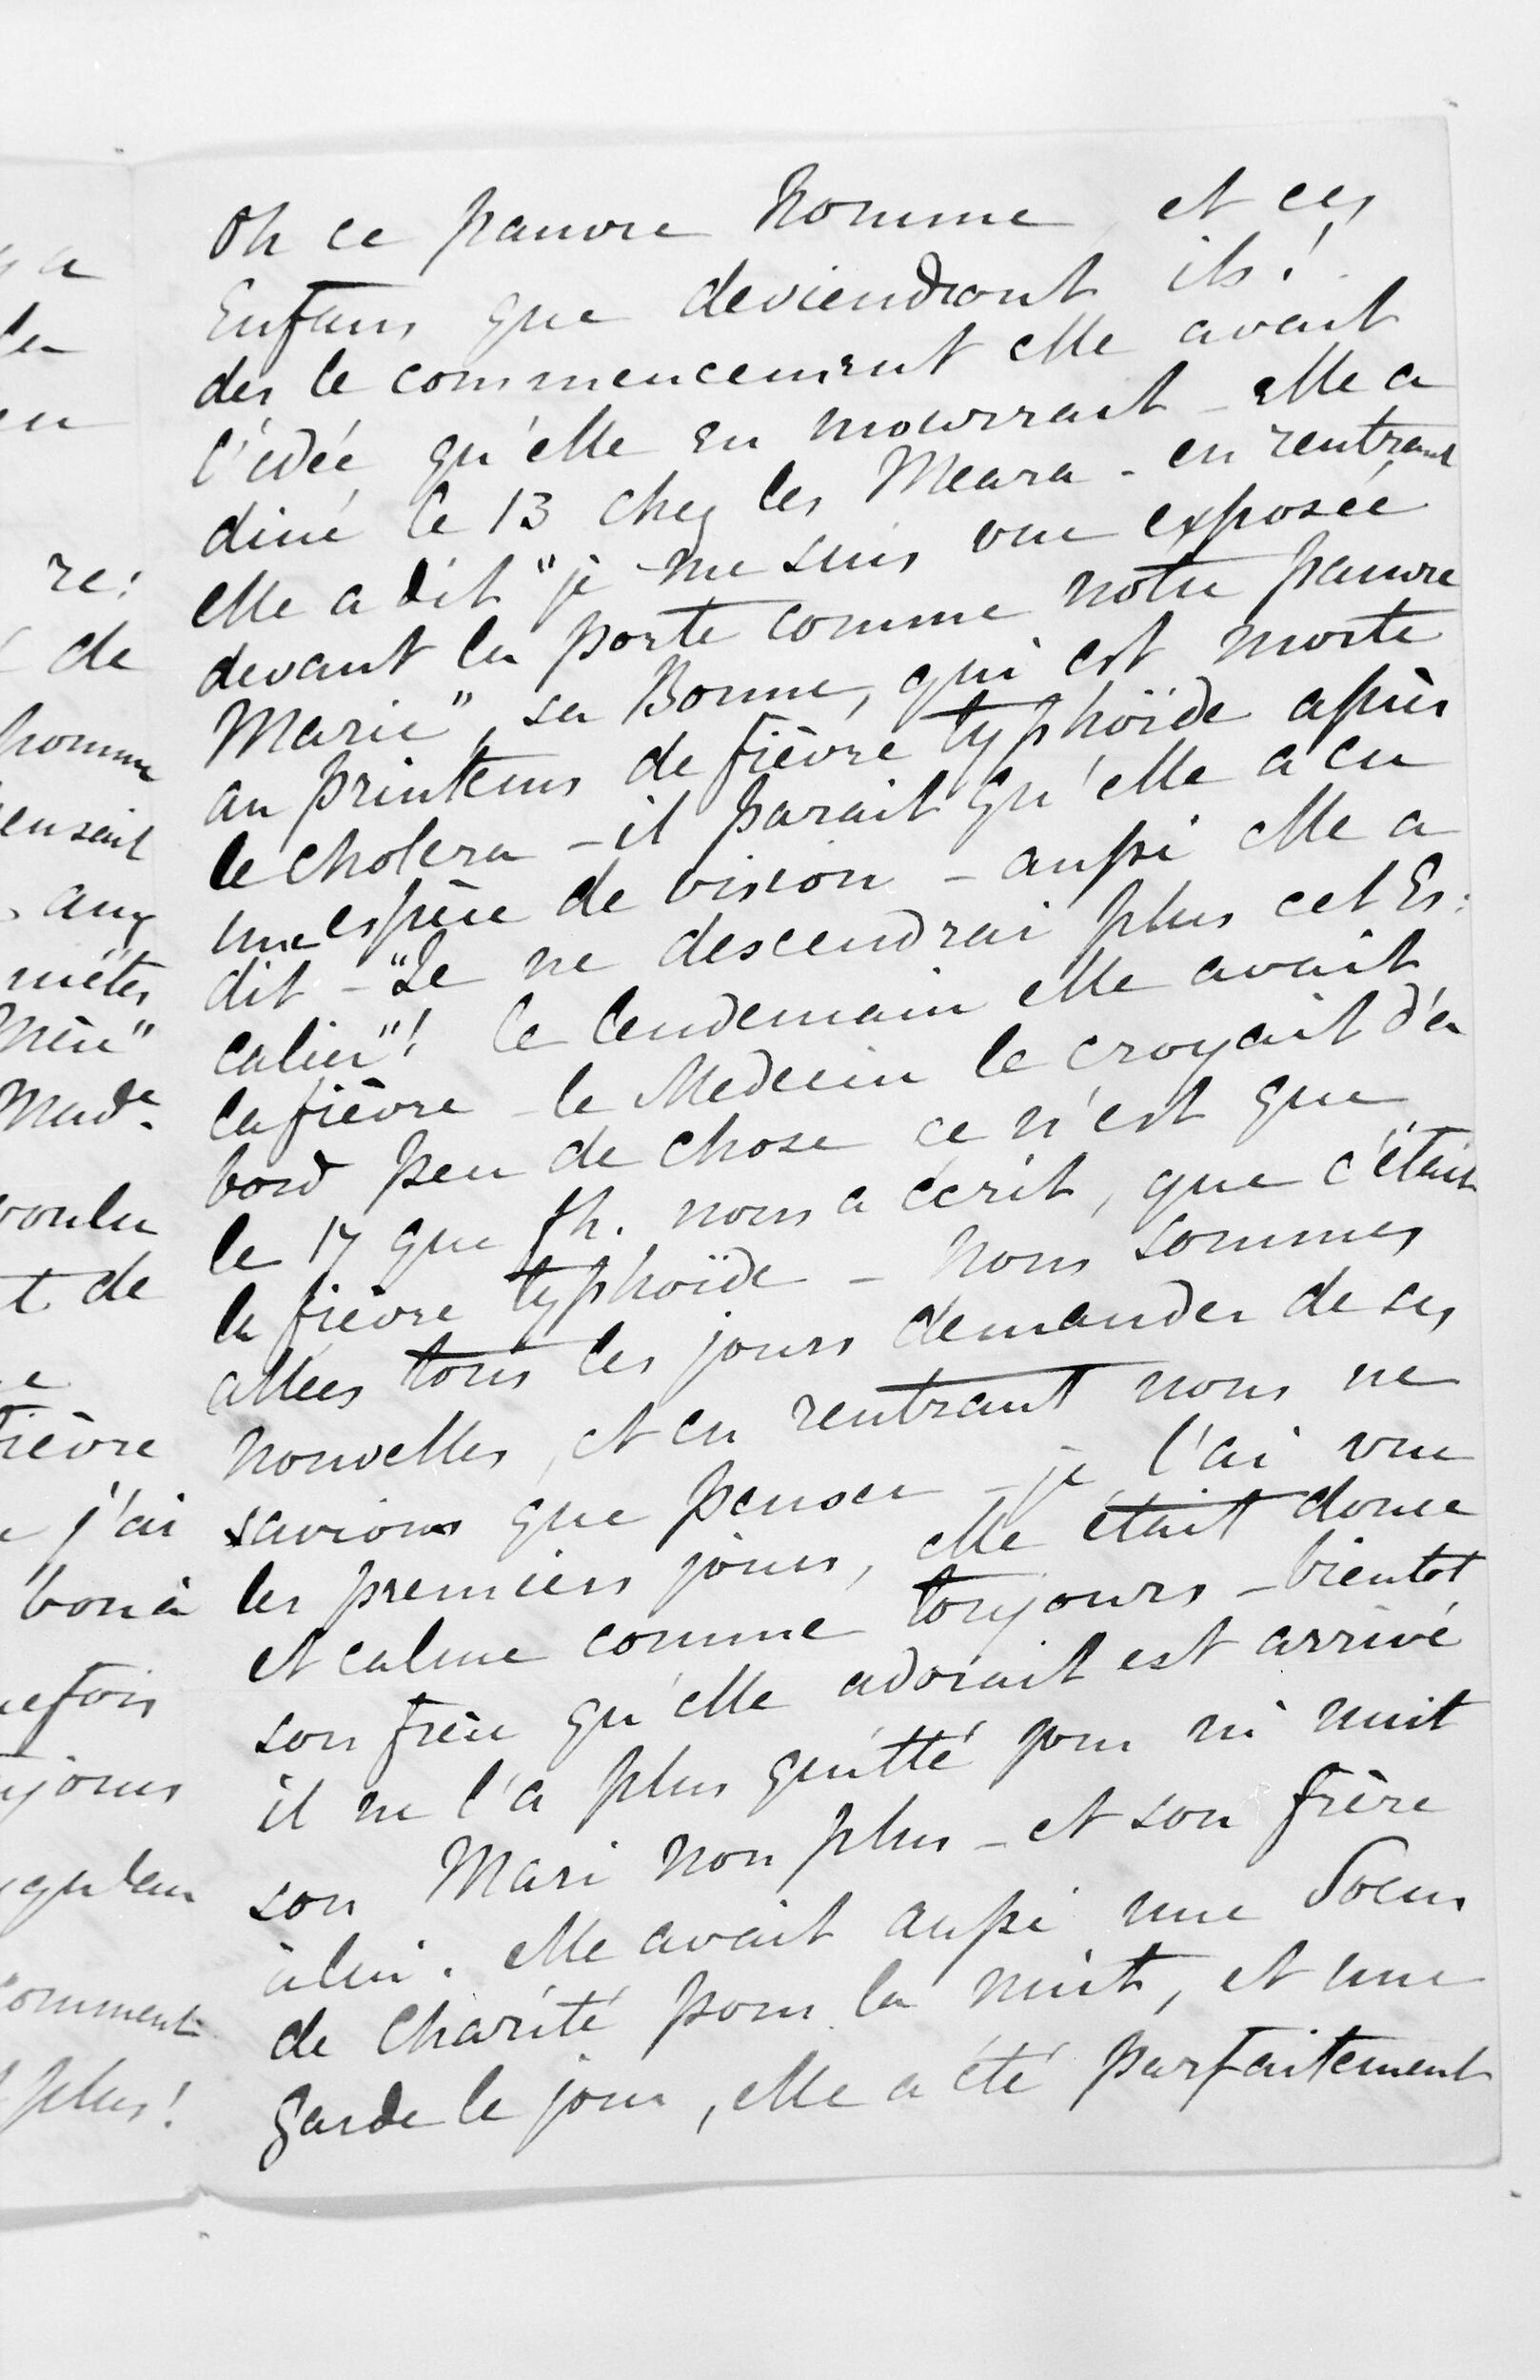 Oh ce pauvre homme, et ces
Enfans que deviendront ils!
des le commencement elle avait
l'idée qu'elle en mourrait – elle a
diné le 13 chez les Meara – en rentrant
elle a dit "je me suis vue exposée
devant la porte comme notre pauvre
Marie", sa Bonne, qui est morte
au printems de fièvre typhoïde après
le cholera – il parait qu'elle a eu
une espèce de vision – aussi elle a
dit – "Je ne descendrai plus cet Es:
calier"! le lendemain elle avait
la fièvre – le Medecin le croyait d'a
bord peu de chose ce n'est que
le 17 que Th. nous a écrit, que c'était
la fièvre typhoïde – nous sommes
allées tous les jours demander de ses
nouvelles, et en rentrant nous ne
savions que penser – je l'ai vue
les premiers jours, elle était douce
et calme comme toujours – bientot
son frère qu'elle adorait est arrivé
il ne l'a plus quitté jour ni nuit
son Mari non plus – et son frère
à lui. elle avait aussi une Soeur
de Charité pour la nuit, et une
garde le jour, elle a été parfaitement
re!
de
homme
aux
Made.
voulu
t de
j'ai
bon à
comment
plus!